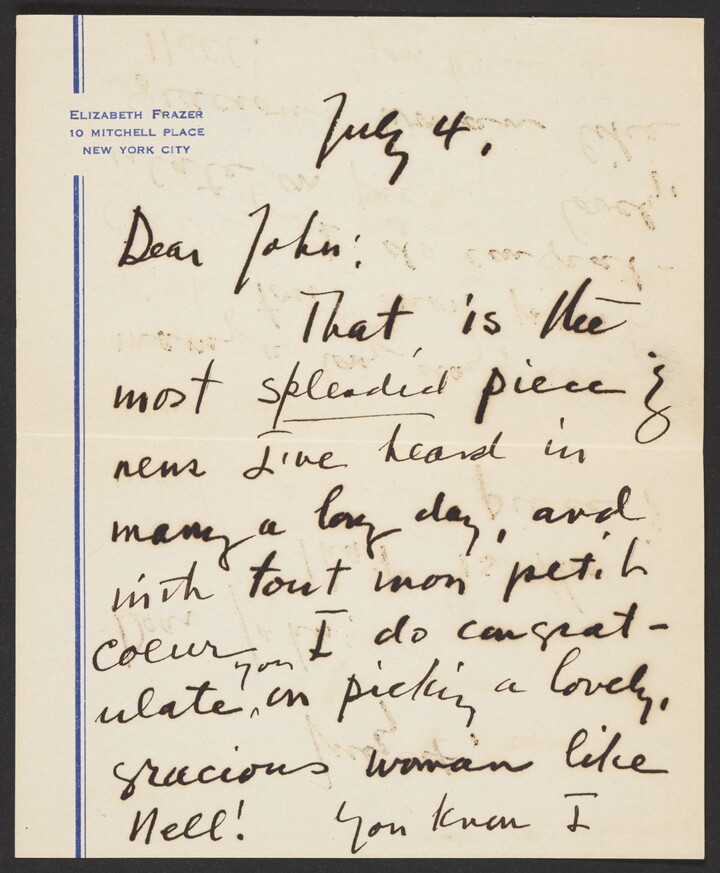 ELIZABETH FRAZER
10 MITCHELL PLACE
NEW YORK CITY
July 4.
Dear John:
That is the
most splendid piece of
news I've heard in
many a long day, and
with tout mon petit
coeur I do congrat-
ulate you on picking a lovely,
gracious woman like
Nell! You know I